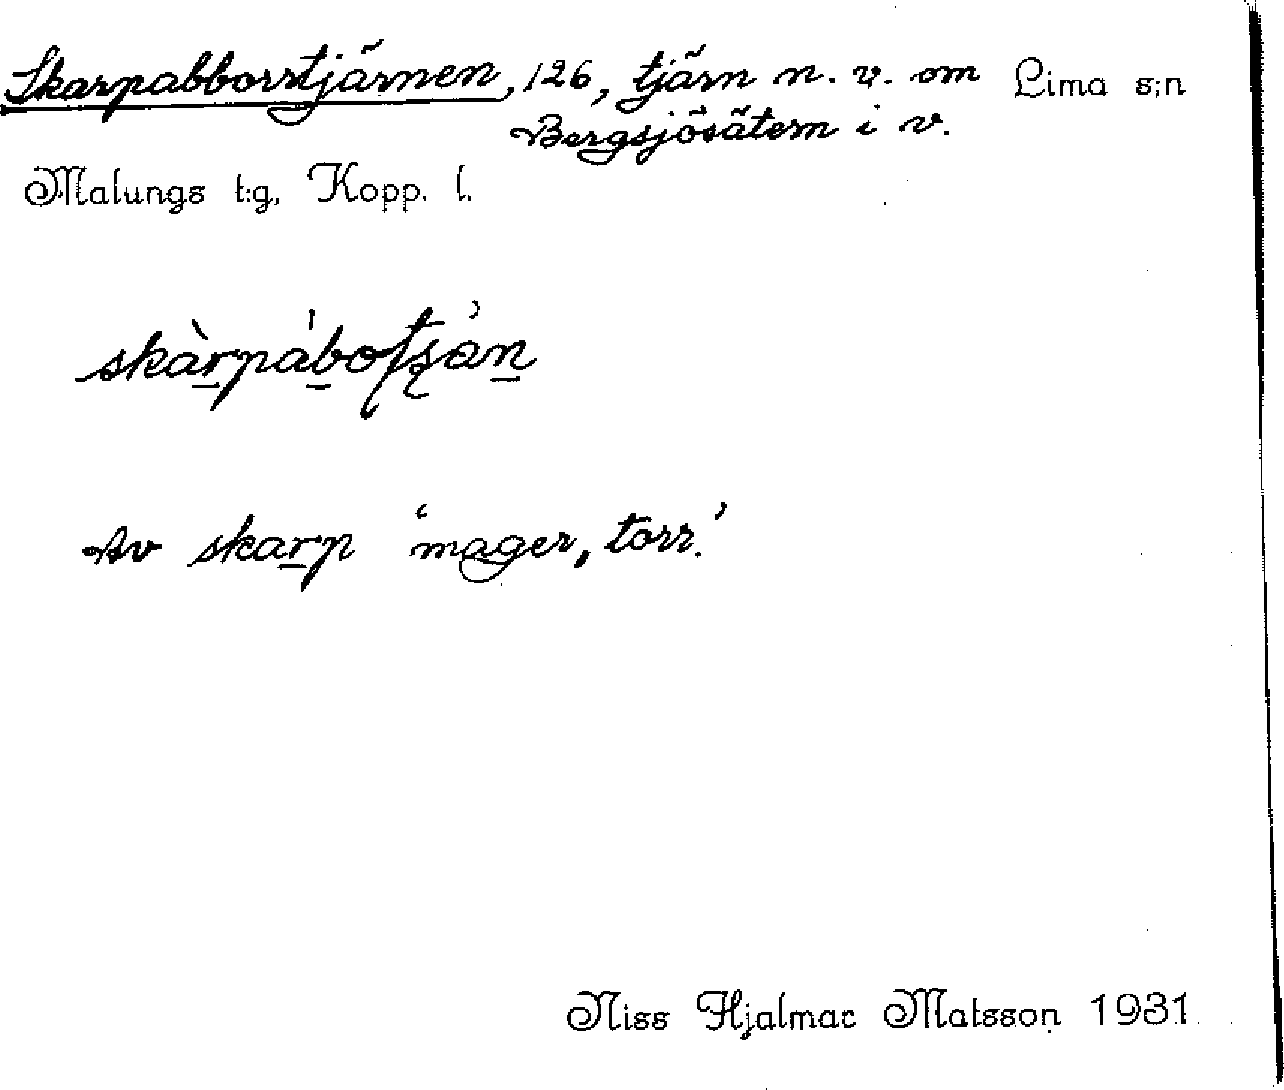 Skarpabborrtjärnen, 126, tjärn n. v. om Lima s:n
Bergsjösätern i v.
Malungs t:g, Kopp. l.
Av skarp 'mager, torr.'
Niss Hjalmar Matsson 1931